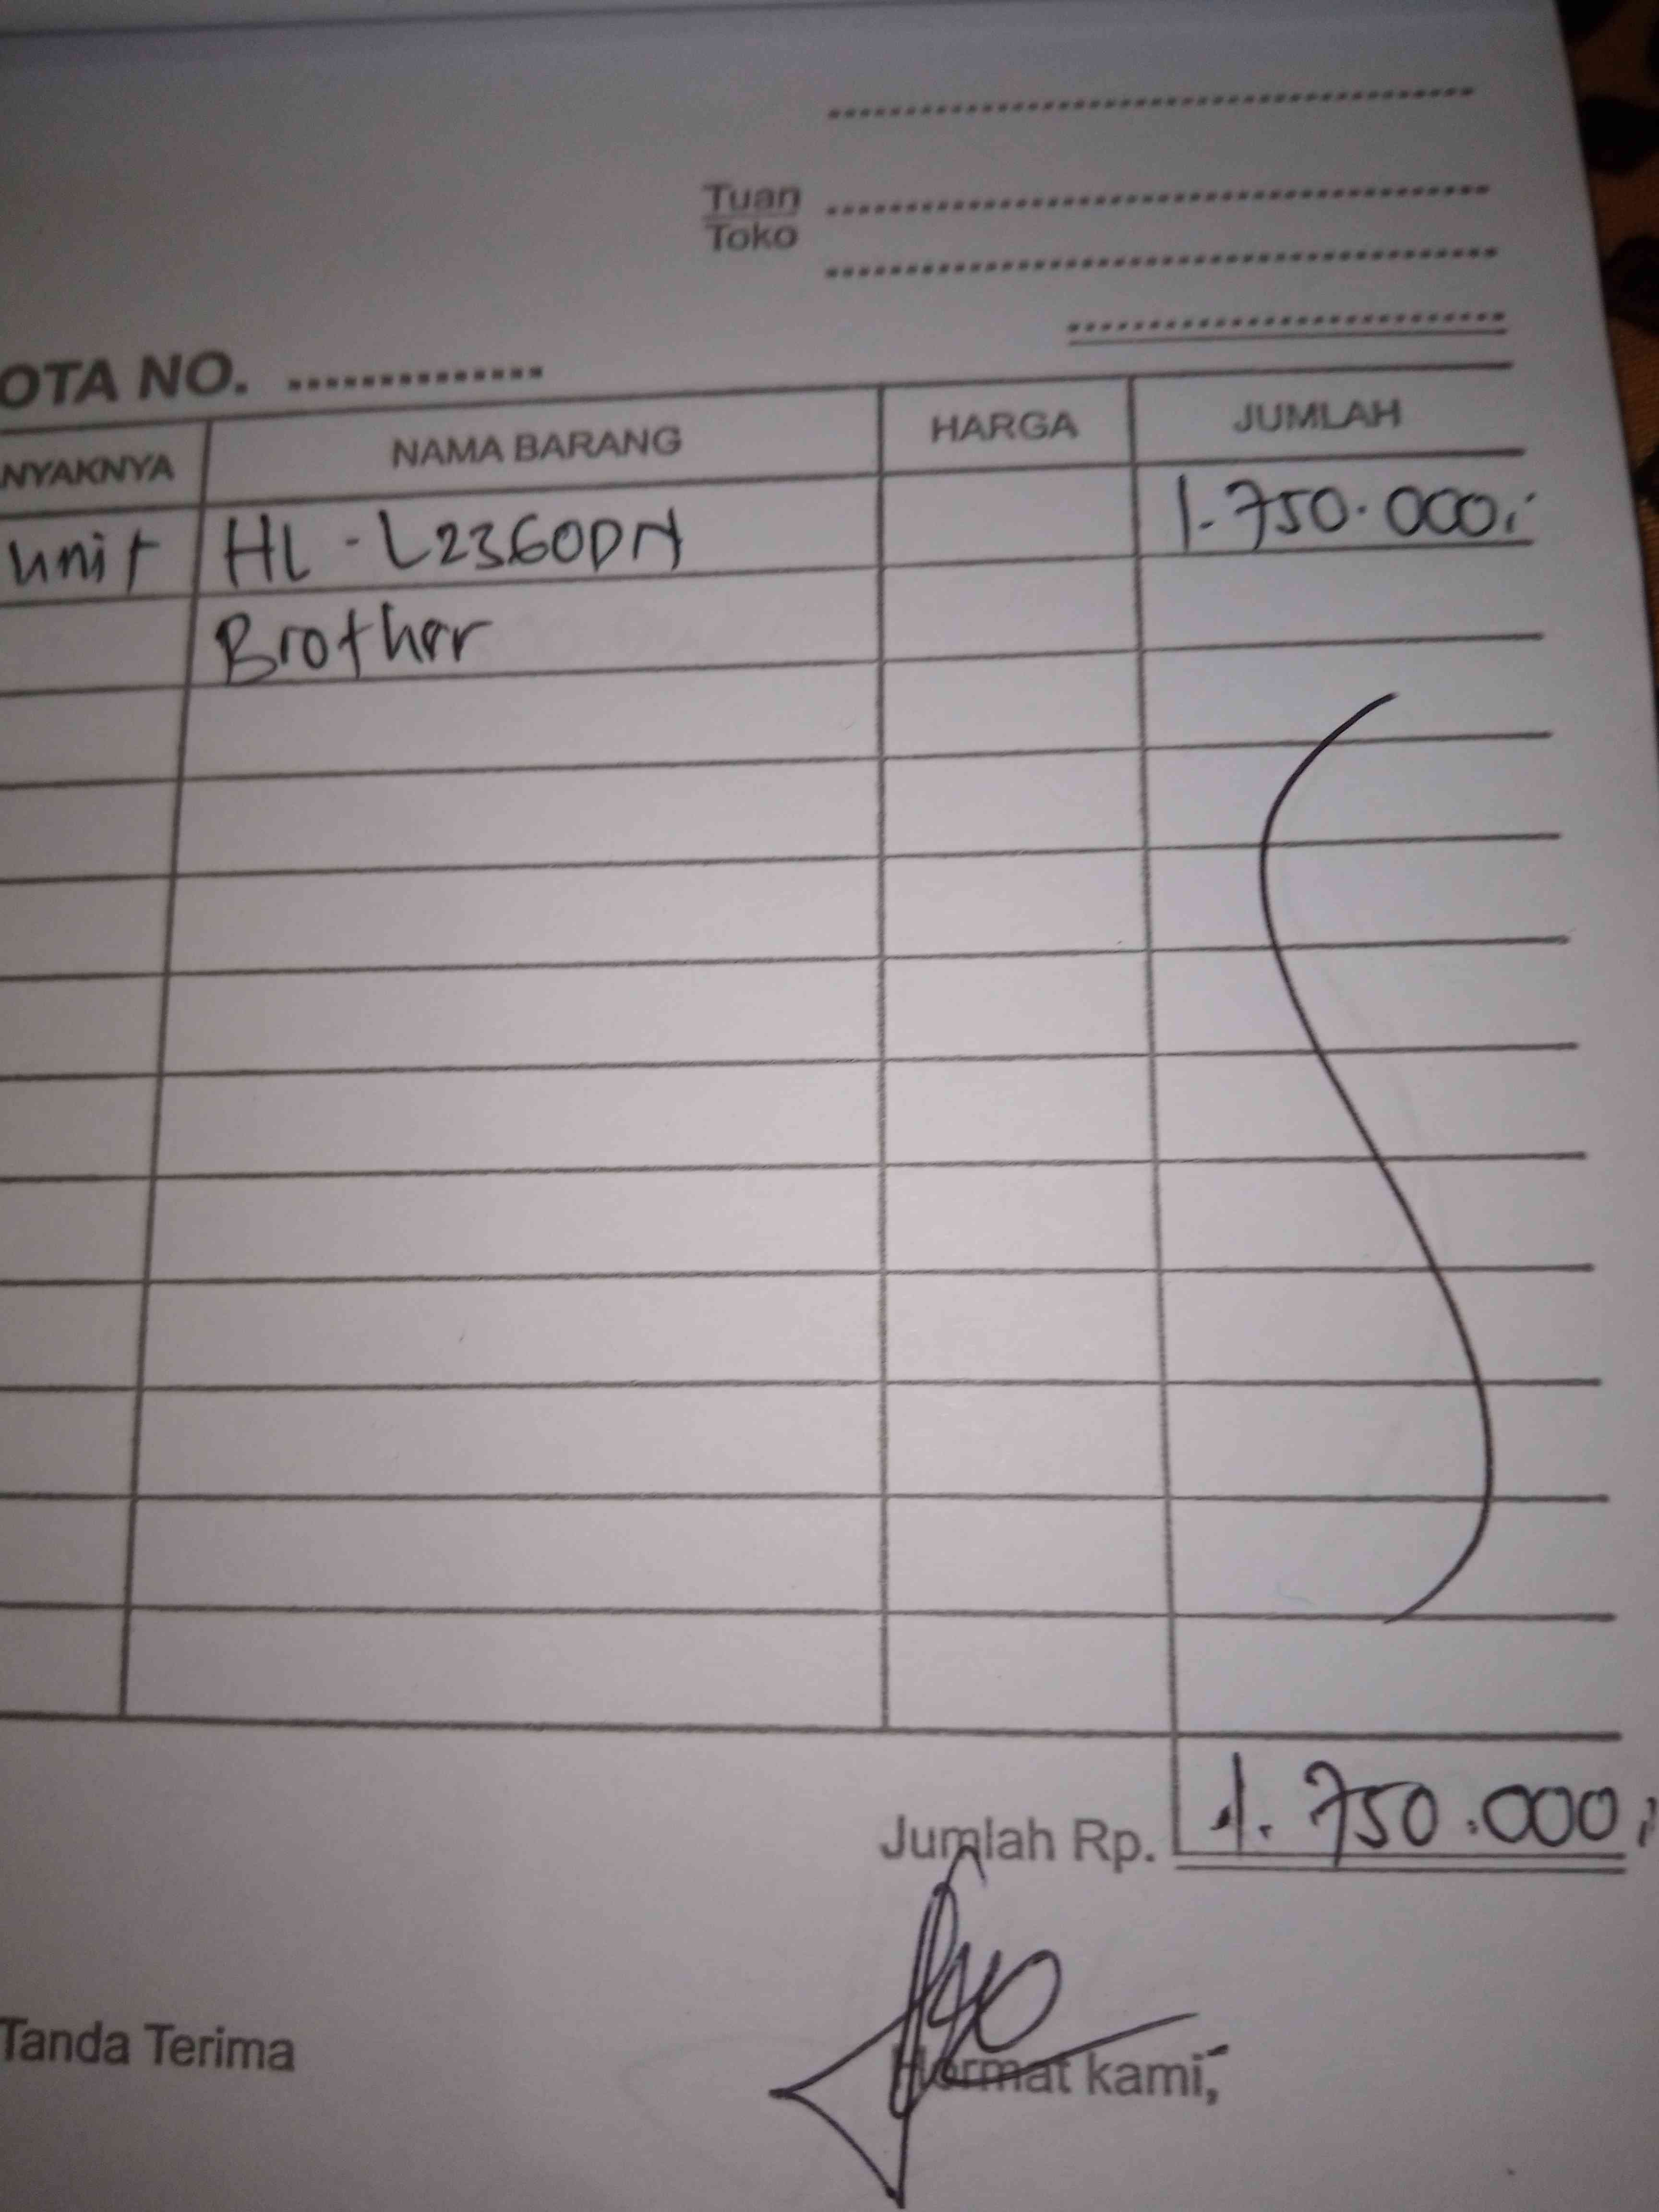 Tuan
Toko
OTA NO. ..............
NYAKNYA NAMA BARANG HARGA JUMLAH
unit HL - L2360DN 1.750.000,-
Brother
Jumlah Rp. 1.750.000,-
Tanda Terima Hormat kami,